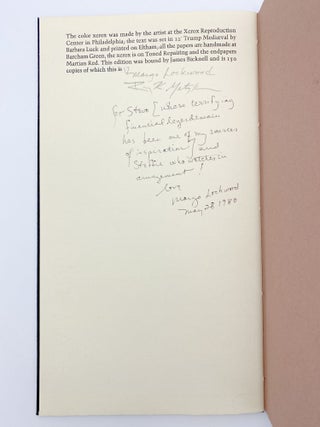 The color xerox was made by the artist at the Xerox Reproduction
Center in Philadelphia; the text was set in 12' Trump Mediæval by
Barbara Luck and printed on Eltham, all the papers are handmade at
Barcham Green, the xerox is on Toned Repairing and the endpapers
Martian Red. This edition was bound by James Bicknell and is 150
copies of which this is
Margo Lockwood
for Steve [whose terrifying
financial legerdemain
has been one of my sources
of inspiration] and
who watches in
amazement!
love
Margo Lockwood
May 28 1980